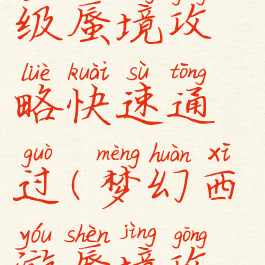 级蜃境攻
lüè kuài sù tōng
略快速通
guò mèng huàn xī
过(梦幻西
yóu shèn jìng gōng
游蜃境攻